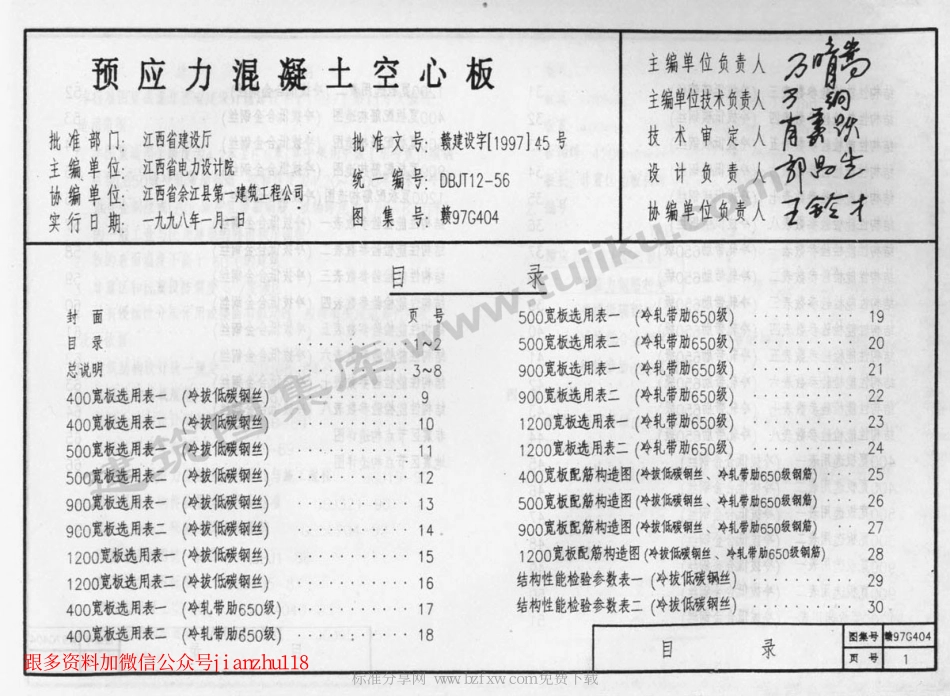 预应力混凝土空心板
批准部门: 江西省建设厅
主编单位: 江西省电力设计院
协编单位: 江西省余江县第一建筑工程公司
实行日期: 一九九八年一月一日
批准文号: 赣建设字[1997]45号
统一编号: DBJT12-56
图集号: 赣97G404
主编单位负责人
主编单位技术负责人
技术审定人
设计负责人
协编单位负责人
目 录
封面 页号
目录 1~2
总说明 3~8
400宽板选用表一 (冷拔低碳钢丝) 9
400宽板选用表二 (冷拔低碳钢丝) 10
500宽板选用表一 (冷拔低碳钢丝) 11
500宽板选用表二 (冷拔低碳钢丝) 12
900宽板选用表一 (冷拔低碳钢丝) 13
900宽板选用表二 (冷拔低碳钢丝) 14
1200宽板选用表一 (冷拔低碳钢丝) 15
1200宽板选用表二 (冷拔低碳钢丝) 16
400宽板选用表一 (冷轧带肋650级) 17
400宽板选用表二 (冷轧带肋650级) 18
500宽板选用表一 (冷轧带肋650级) 19
500宽板选用表二 (冷轧带肋650级) 20
900宽板选用表一 (冷轧带肋650级) 21
900宽板选用表二 (冷轧带肋650级) 22
1200宽板选用表一 (冷轧带肋650级) 23
1200宽板选用表二 (冷轧带肋650级) 24
400宽板配筋构造图 (冷拔低碳钢丝、冷轧带肋650级钢筋) 25
500宽板配筋构造图 (冷拔低碳钢丝、冷轧带肋650级钢筋) 26
900宽板配筋构造图 (冷拔低碳钢丝、冷轧带肋650级钢筋) 27
1200宽板配筋构造图 (冷拔低碳钢丝、冷轧带肋650级钢筋) 28
结构性能检验参数表一 (冷拔低碳钢丝) 29
结构性能检验参数表二 (冷拔低碳钢丝) 30
目 录
图集号 赣97G404
页号 1
建筑图集库 www.tujiku.com
跟多资料加微信公众号jianzhu118
标准分享网 www.bzfxw.com 免费下载